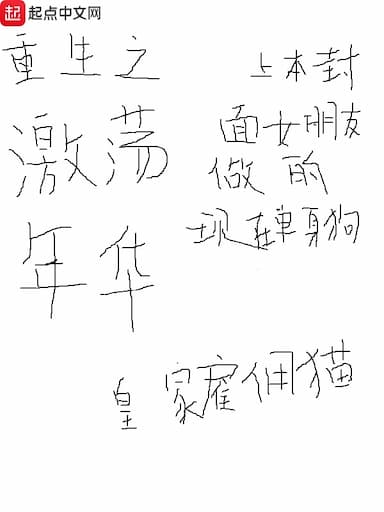 起 起点中文网
重生之
激荡
年华
上本封
面女朋友
做的
现在单身狗
皇家雇佣猫